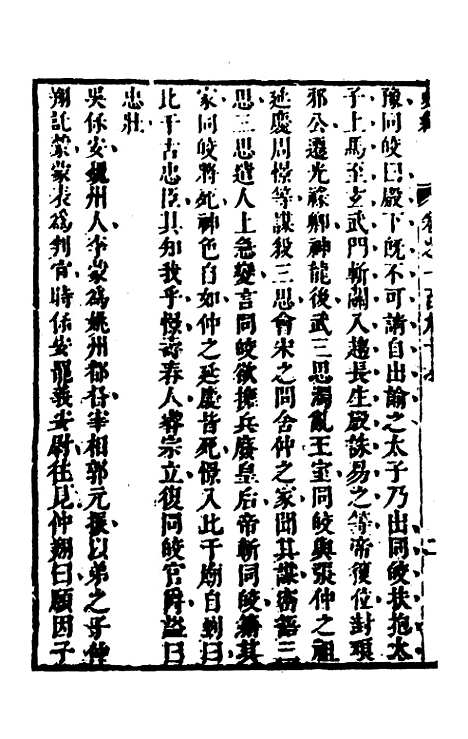 豫同皎曰殿下旣不可請自出諭之太子乃出同皎扶抱太
子上馬至玄武門斬關入趨長生殿誅易之等帝復位封琅
邪公遷光祿卿神龍後武三思濁亂王室同皎與張仲之祖
延慶周憬等謀殺三思會宋之問舍仲之家聞其謀密語三
思三思遣人上急變言同皎欲擁兵廢皇后帝斬同皎籍其
家同皎將死神色自如仲之延慶皆死憬入比干廟自剄曰
比干古忠臣其知我乎憬壽春人睿宗立復同皎官爵諡曰
忠壯
吳保安魏州人李蒙爲姚州都督宰相郭元振以弟之子仲
翔託蒙蒙表爲判官時保安罷義安尉往見仲翔曰願因子